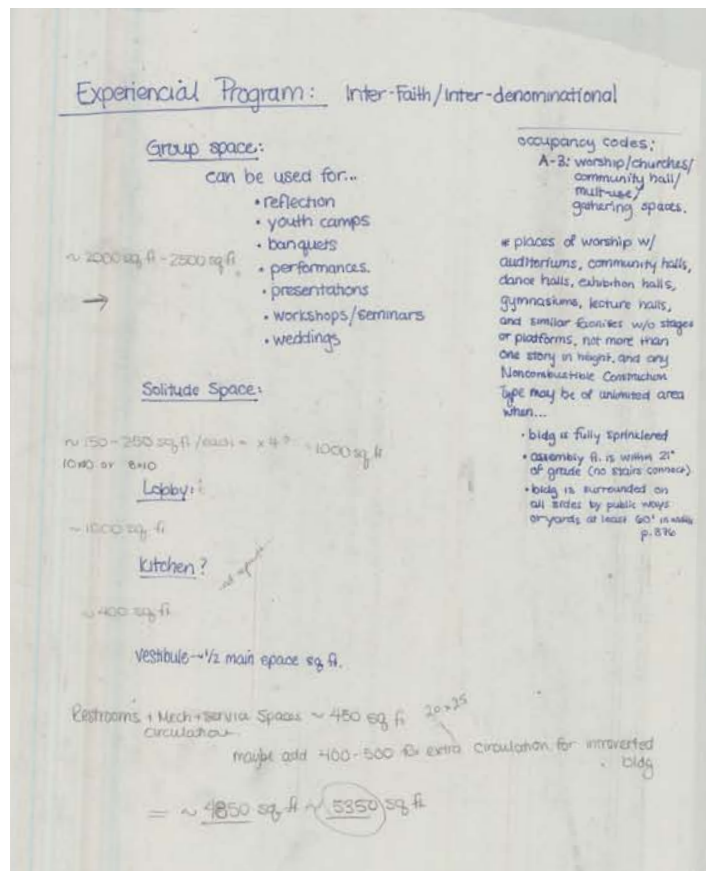 Experiencial Program: Inter-Faith/Inter-denominational
Group space:
can be used for...
• reflection
• youth camps
• banquets
• performances.
• presentations
• workshops/seminars
• weddings
~ 2000 sq ft - 2500 sq ft.
→
Solitude Space:
~ 150 - 250 sq ft /each = x 4 = 1000 sq ft
10x10 or 8x10
Lobby:
~ 1000 sq ft
Kitchen?
~ 400 sq ft
Vestibule → 1/2 main space sq ft.
Restrooms + Mech + service Spaces ~ 450 sq ft 20x25
circulation
maybe add 400-500 for extra circulation for introverted
bldg
= ~ 4850 sq ft ~ 5350 sq ft
occupancy codes:
A-3: worship/churches/
community hall/
mult-use/
gathering spaces.
* places of worship w/
auditoriums, community halls,
dance halls, exhibition halls,
gymnasiums, lecture halls,
and similar facilities w/o stages
or platforms, not more than
one story in height, and any
Noncombustible Construction
Type may be of unlimited area
when...
• bldg is fully sprinklered
• assembly fl. is within 21"
of grade (no stairs connect)
• bldg is surrounded on
all sides by public ways
or yards at least 60' in width
p. 376